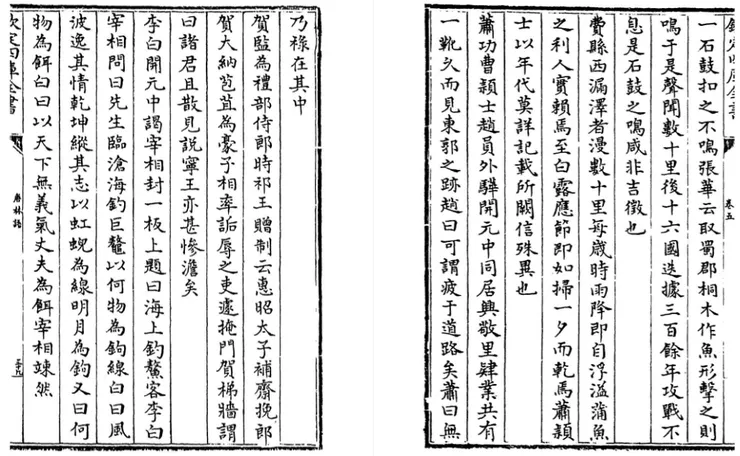 欽定四庫全書
卷五
一石鼓扣之不鳴張華云取蜀郡桐木作魚形擊之則
鳴于是聲聞數十里後十六國迭據三百餘年攻戰不
息是石鼓之鳴咸非吉徵也
費縣西漏澤者漫數十里每歲時雨降即自浮溢蒲魚
之利人實賴焉至白露應節即如掃一夕而乾焉蕭穎
士以年代莫詳記載所闕信殊異也
蕭功曹穎士趙員外驊開元中同居興敬里肄業共有
一靴久而見東郭之跡趙曰可謂疲于道路矣蕭曰無
乃祿在其中
賀監為禮部侍郎時祁王贈制云惠昭太子補齋挽郎
賀大納苞苴為豪子相率詬辱之吏遽掩門賀梯牆謂
曰諸君且散見說寧王亦甚慘澹矣
李白開元中謁宰相封一板上題曰海上釣鰲客李白
宰相問曰先生臨滄海釣巨鰲以何物為鉤線白曰風
波逸其情乾坤縱其志以虹蜺為線明月為鉤又曰何
物為餌白曰以天下無義氣丈夫為餌宰相竦然
欽定四庫全書
唐語林